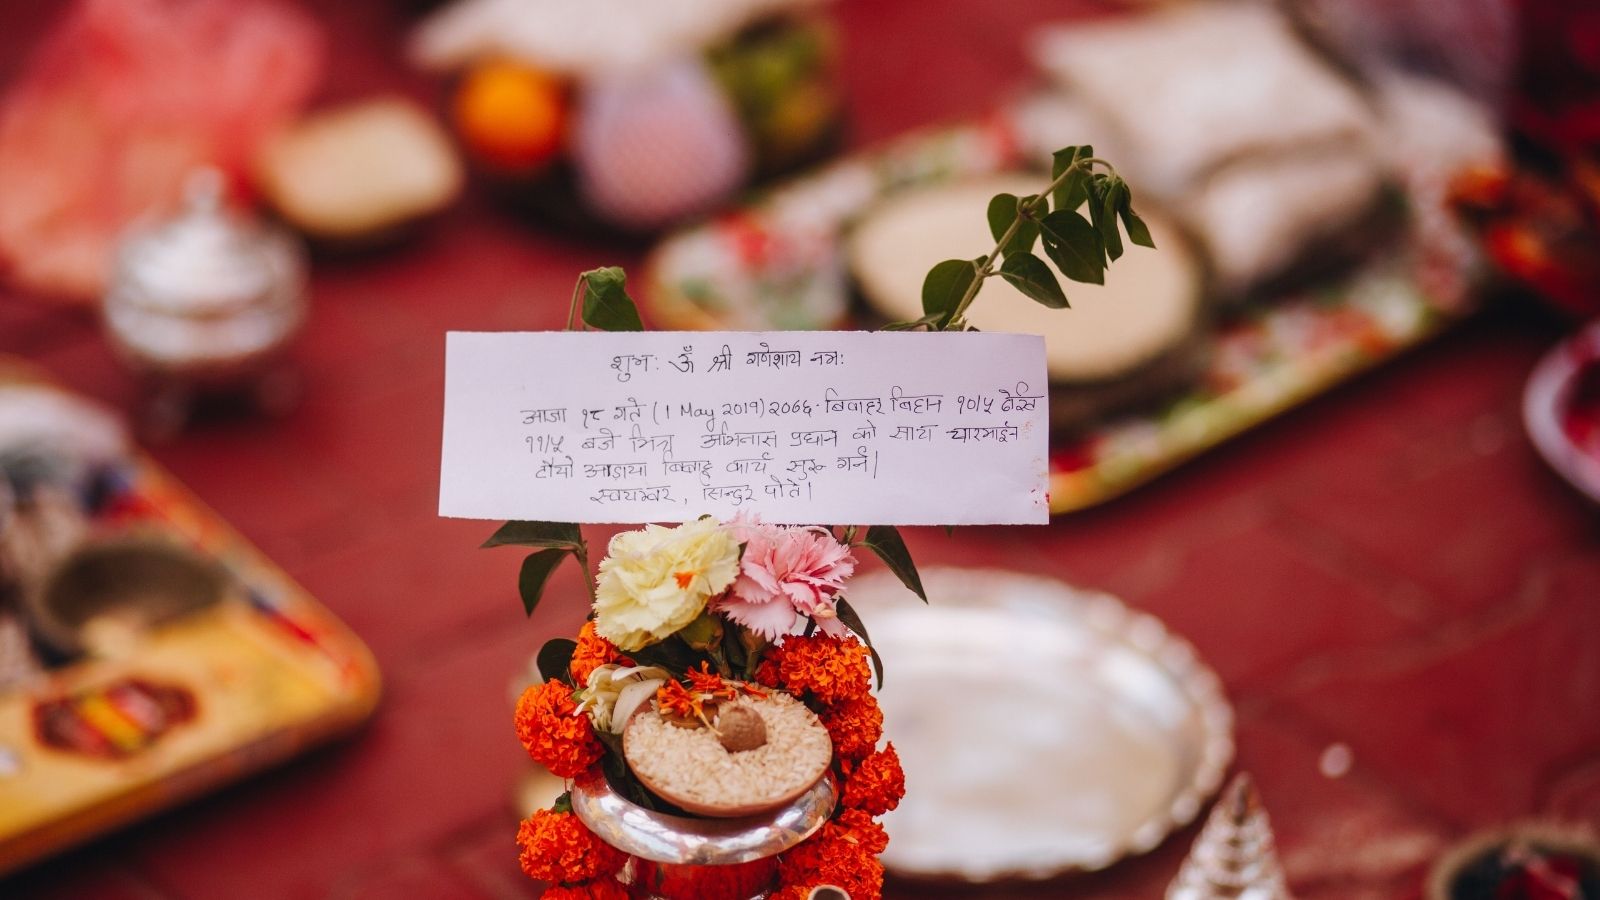 शुभः ॐ श्री गणेशाय नमः
आजा १८ गते (1 May 2019) २०७६ बिवाहर बिहान १०/५ देखि
११/५ बजे भित्र अभिनास प्रधान को साथ चारभाईन
टीयो आडाया बिबाह कार्य सुरु गर्न।
स्वयम्बर, सिन्दुर पोते।